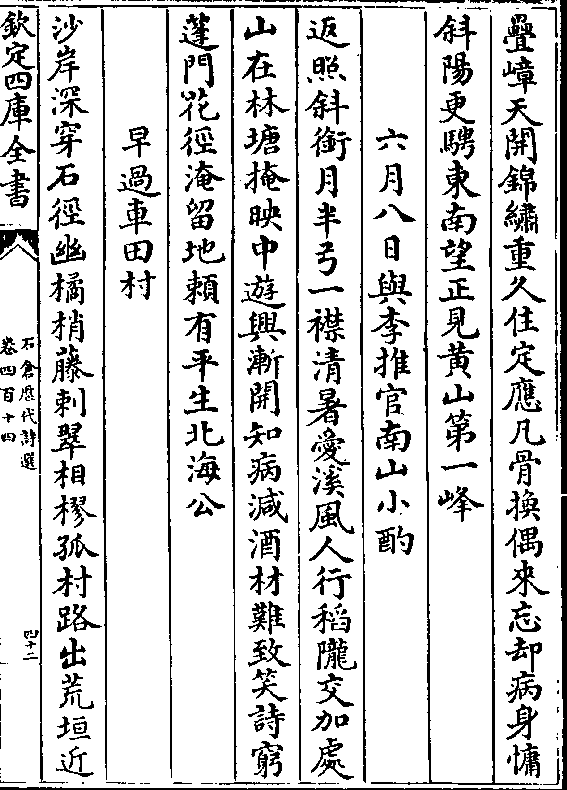 疊嶂天開錦繡重久住定應凡骨換偶來忘却病身慵
斜陽更騁東南望正見黄山第一峰
六月八日與李推官南山小酌
返照斜銜月半弓一襟清暑愛溪風人行稻隴交加處
山在林塘掩映中遊興漸開知病減酒材難致笑詩窮
蓬門花徑淹留地頼有平生北海公
早過車田村
沙岸深穿石徑幽橘梢藤刺翠相樛孤村路出荒垣近
欽定四庫全書
石倉歴代詩選
卷四百十四
四十二